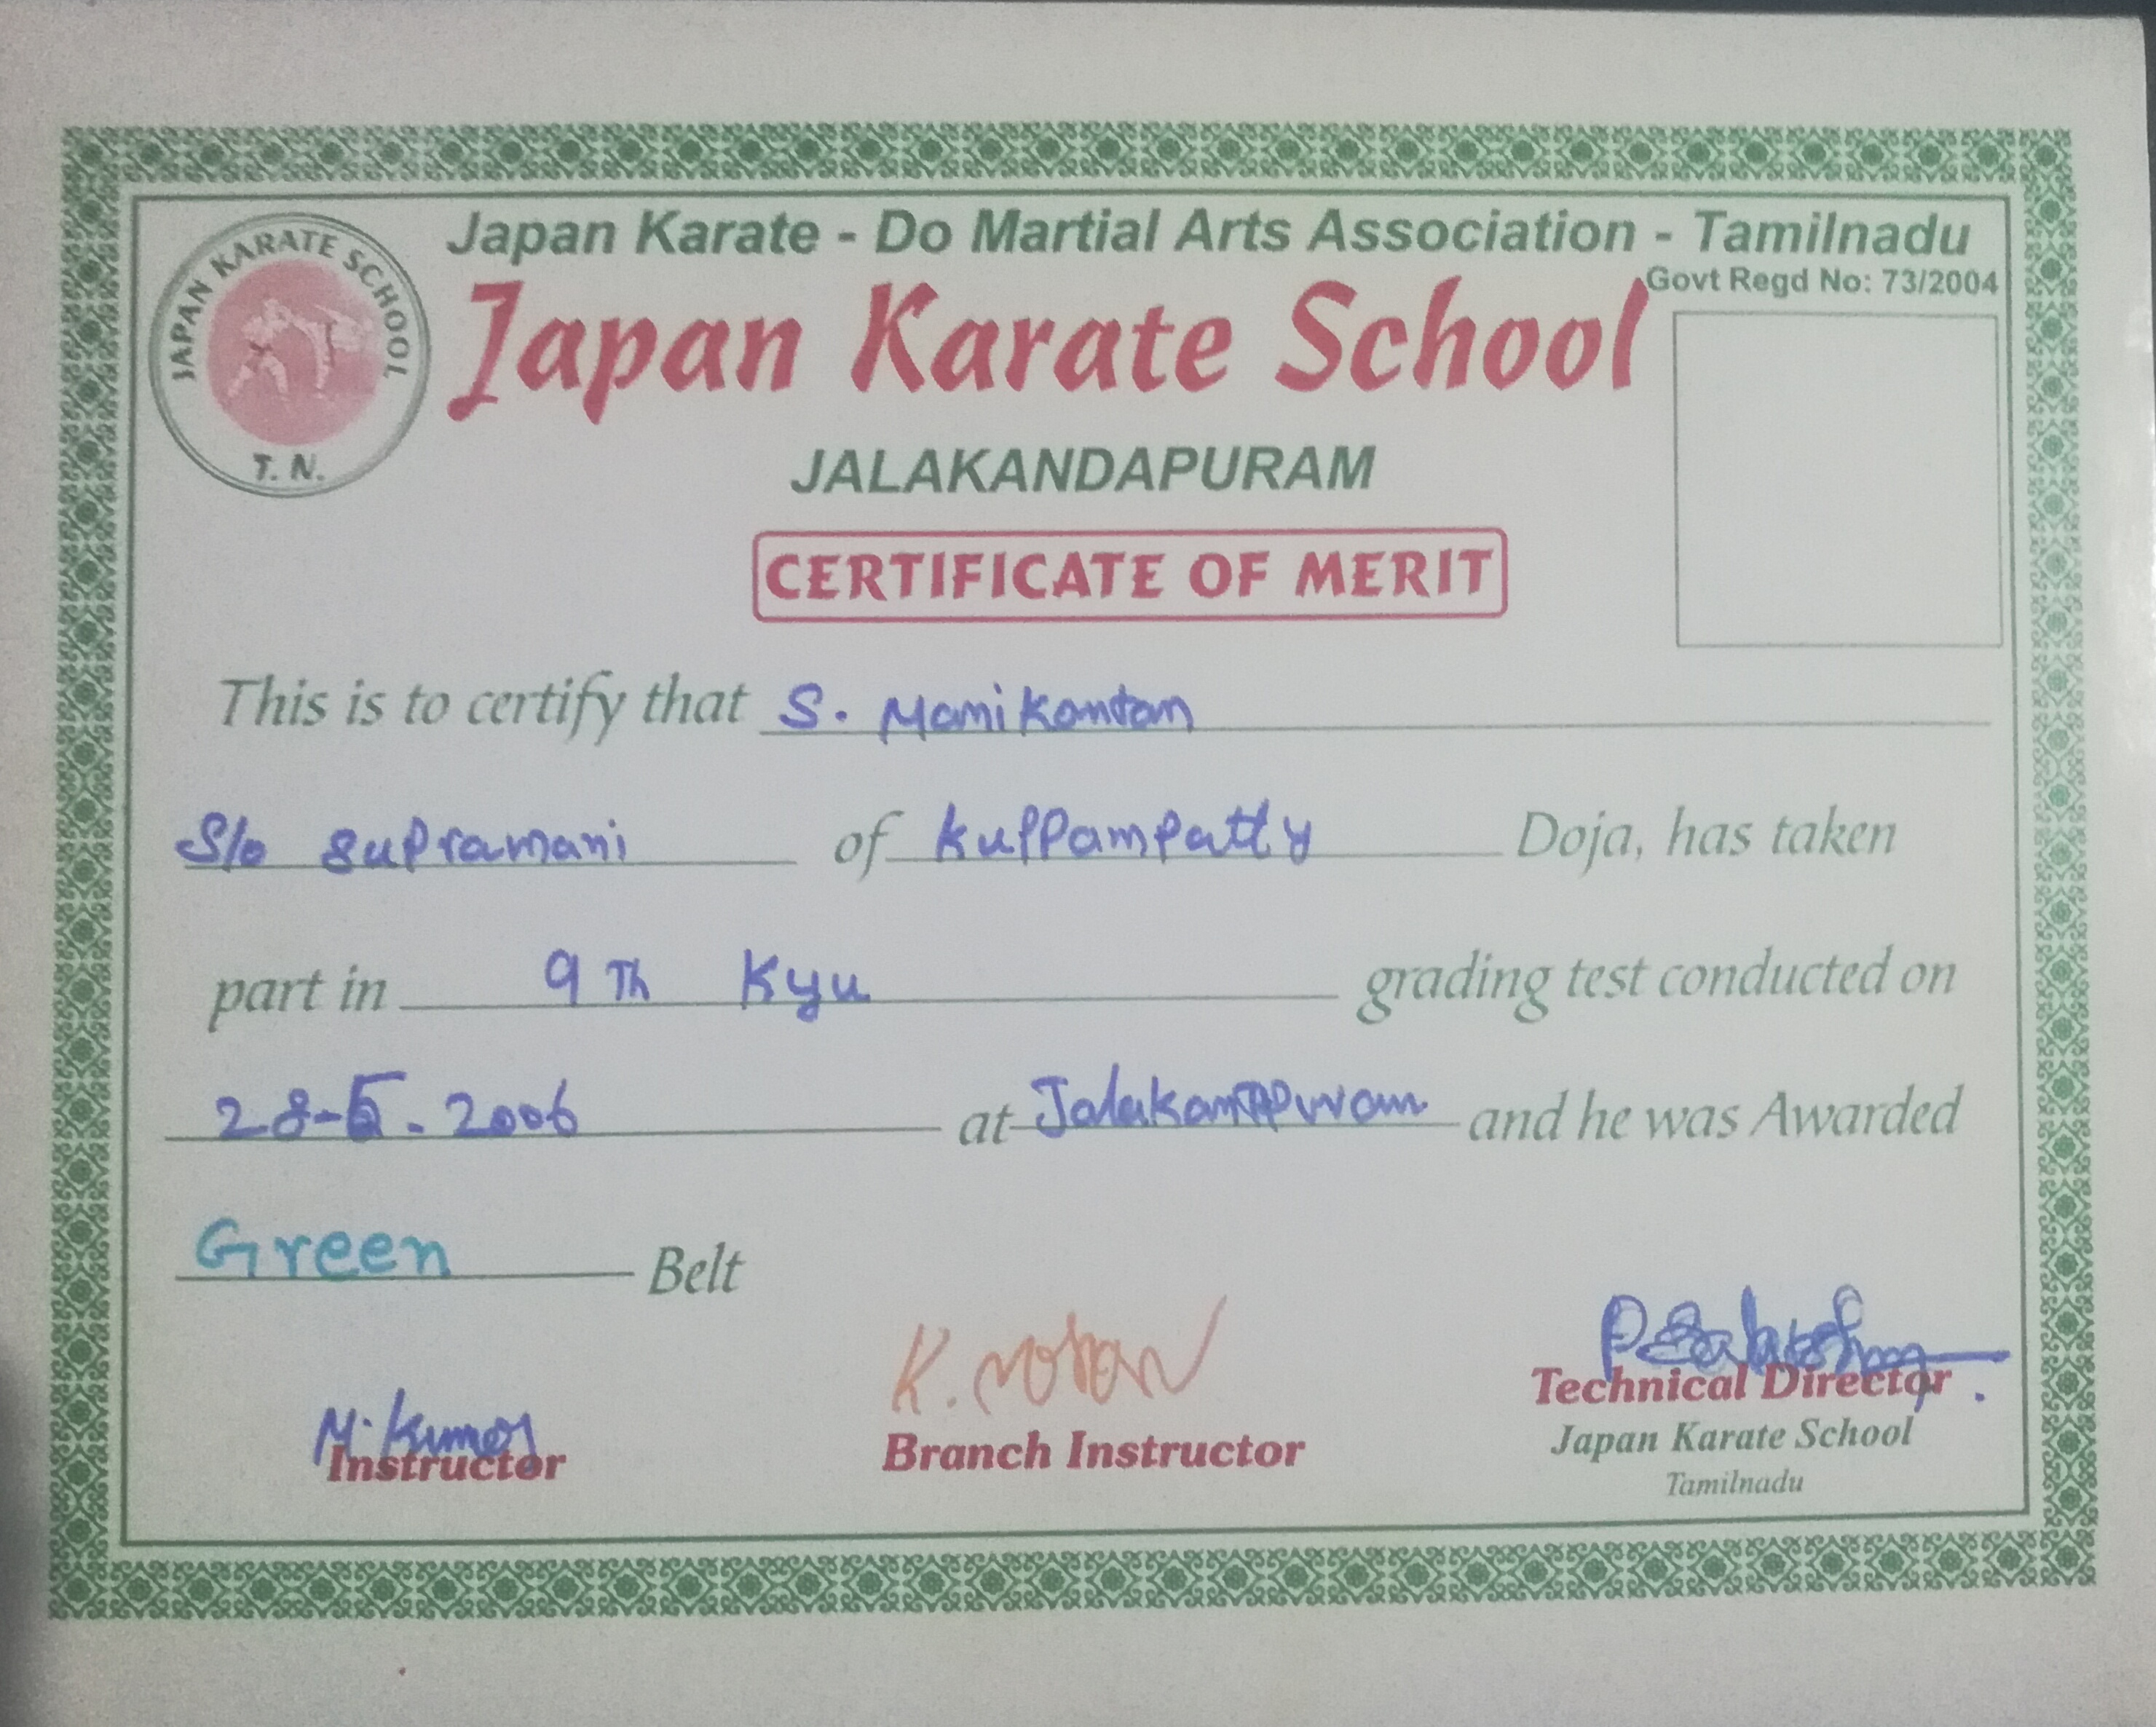 Japan Karate - Do Martial Arts Association - Tamilnadu
Govt Regd No: 73/2004
JAPAN KARATE SCHOOL
T. N.
Japan Karate School
JALAKANDAPURAM
CERTIFICATE OF MERIT
This is to certify that S. Manikantan
S/o Supramani of Kuppampatty Doja, has taken
part in 9 Th Kyu grading test conducted on
28-5-2006 at and he was Awarded
Green Belt
M. Kumar
Instructor
K. Mohan
Branch Instructor
Technical Director
Japan Karate School
Tamilnadu